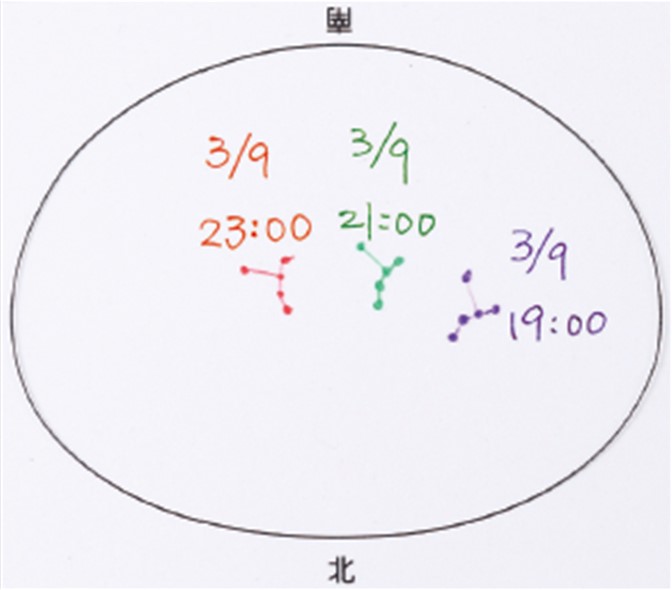 南
3/9
23:00
3/9
21:00
3/9
19:00
北